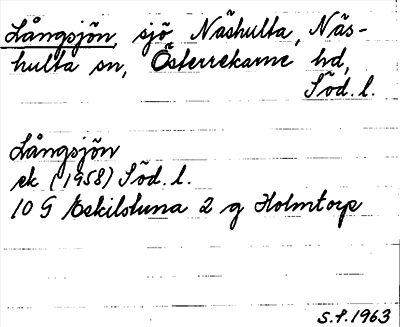 Långsjön, sjö, Näshulta, Näs-
hulta sn, Österrekarne hd,
Söd. l.
Långsjön
ek (1958) Söd. l.
10 G Eskilstuna 2 g Holmtorp
S.f. 1963